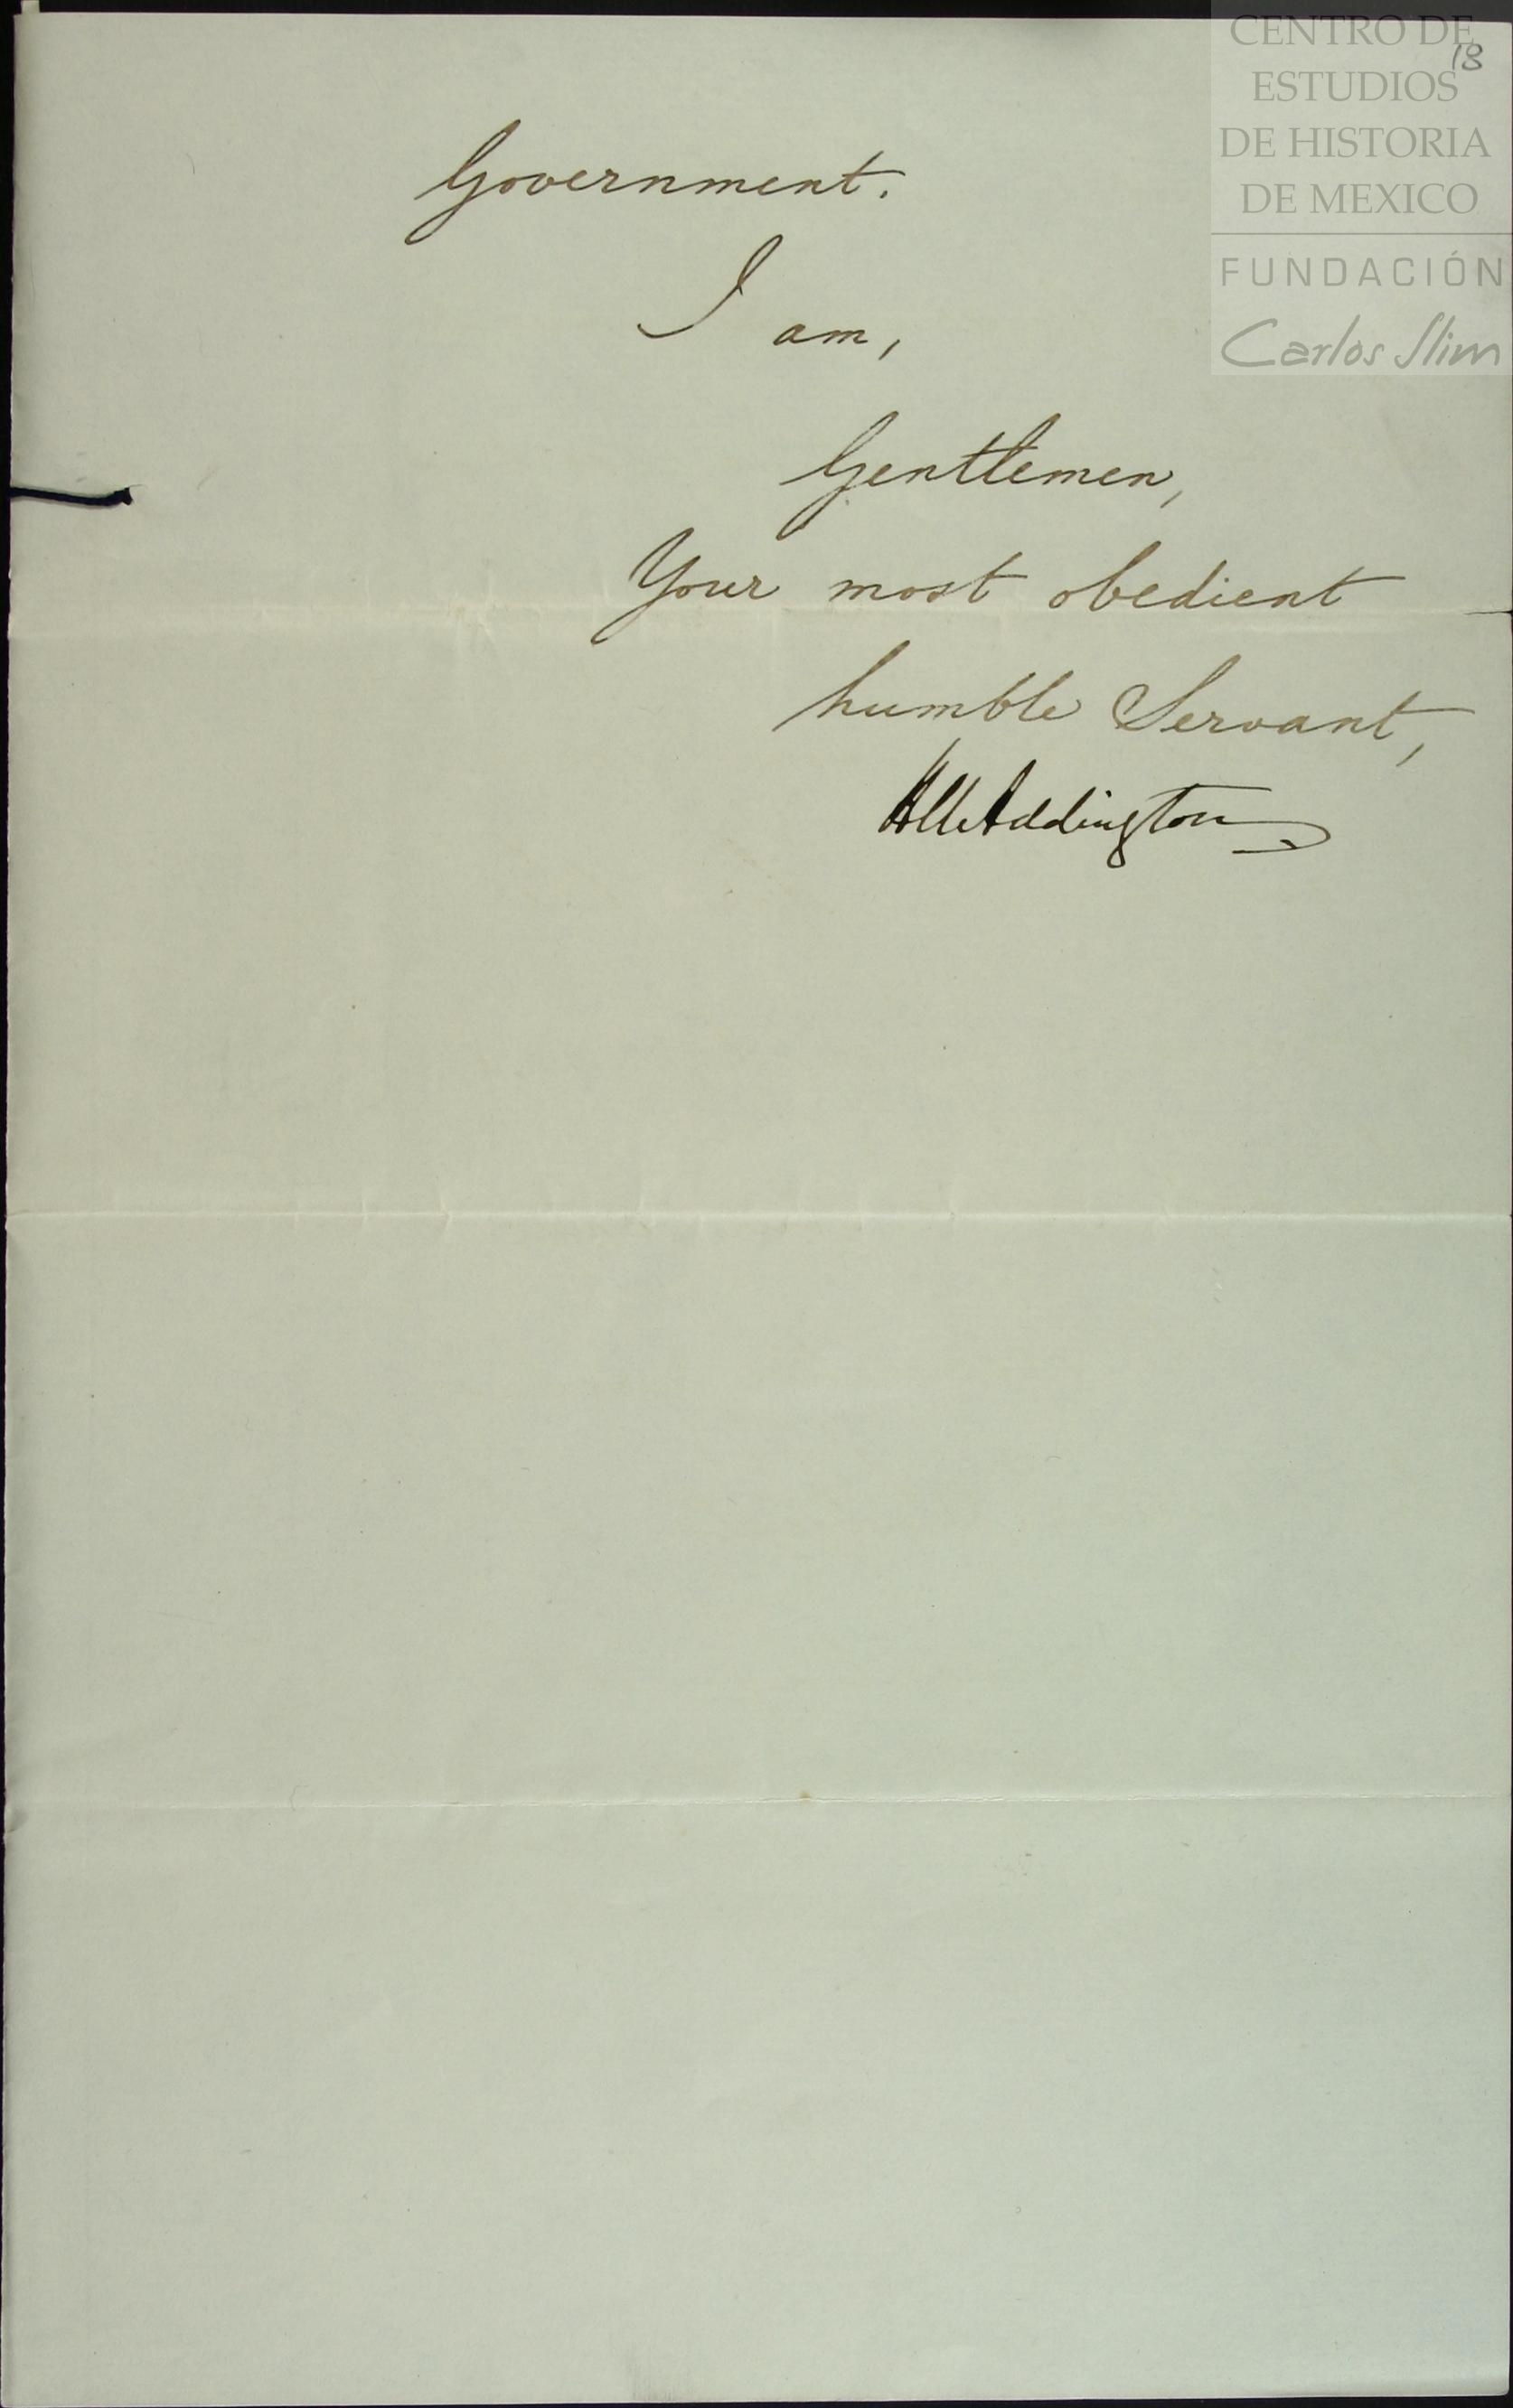 CENTRO DE
ESTUDIOS
DE HISTORIA
DE MEXICO
FUNDACIÓN
Carlos Slim
18
Government.
I am,
Gentlemen,
Your most obedient
humble Servant,
HUAddington